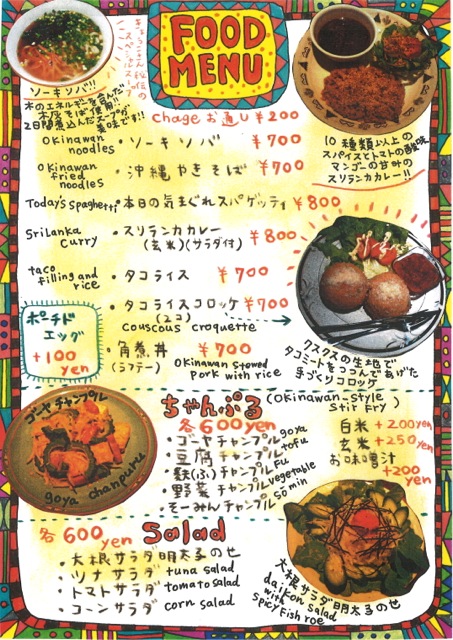 FOOD
MENU
ソーキソバ!!
2日間煮込んだスープが
美味です!!
chageお通し ¥200
Okinawan noodles ・ソーキソバ ¥700
Okinawan fried noodles ・沖縄やきそば ¥700
Today's spaghetti ・本日の気まぐれスパゲッティ ¥800
Srilanka curry ・スリランカカレー ¥800
(玄米)(サラダ付)
taco filling and rice ・タコライス ¥700
・タコライスコロッケ ¥700
(2コ)
couscous croquette
・角煮丼 ¥700
(ラフテー) Okinawan stewed pork with rice
10種類以上の
スパイスとトマトの酸味
マンゴーの甘みの
スリランカカレー!!
ポーチド
エッグ
+100
yen
クスクスの生地で
タコミートをつつんであげた
手づくりコロッケ
ゴーヤチャンプル
goya chanpuru
ちゃんぷる (Okinawan style stir fry)
各600yen
・ゴーヤチャンプル goya
・豆腐チャンプル tofu
・麩(ふ)チャンプル Fu
・野菜チャンプル vegetable
・そーみんチャンプル somin
白米 +200yen
玄米 +250yen
お味噌汁
+200
yen
各600yen Salad
・大根サラダ明太子のせ
・ツナサラダ tuna salad
・トマトサラダ tomato salad
・コーンサラダ corn salad
大根サラダ明太子のせ
daikon salad
with
spicy fish roe